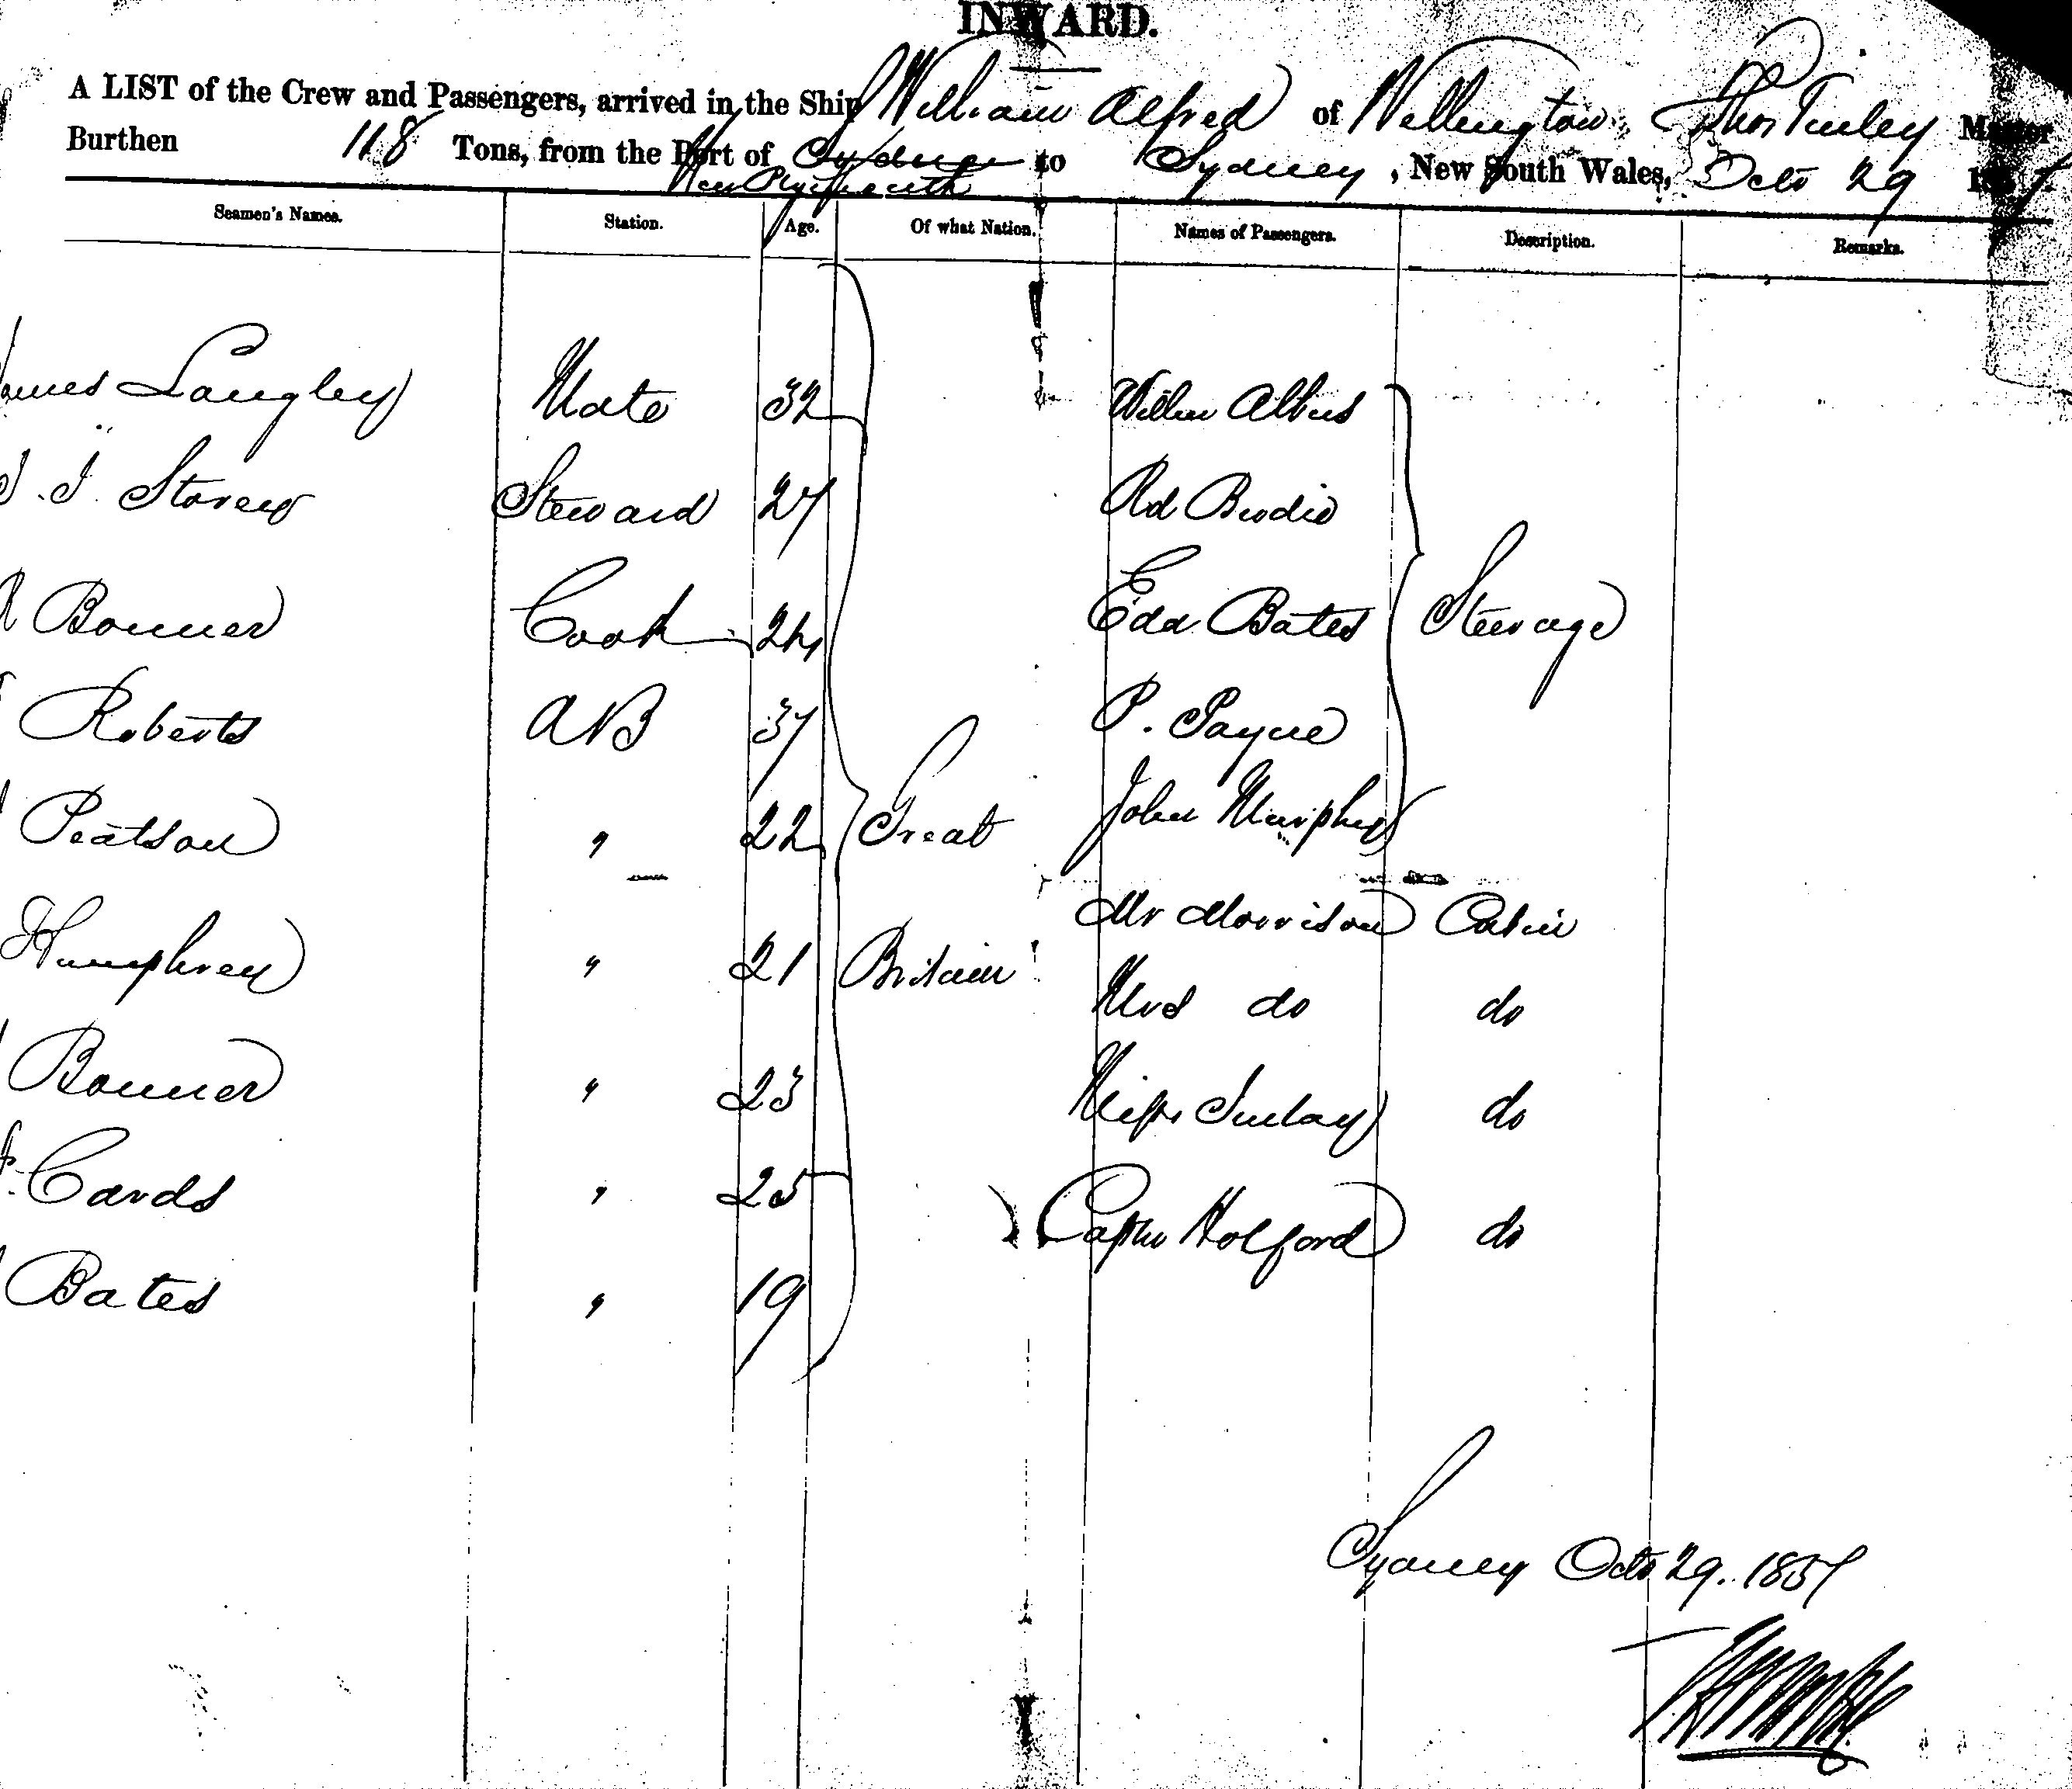 INWARD.
A LIST of the Crew and Passengers, arrived in the Ship William Alfred of Wellington Thos Tinley Master
Burthen 118 Tons, from the Port of Sydney to Sydney, New South Wales, Octo 29 1857
New Plymouth
Seamen's Names. Station. Age. Of what Nation. Names of Passengers. Description. Remarks.
James Langley Mate 32
J. J. Storey Steward 27 Rd Brodie
R Bonner Cook 24 Edd Bates Steerage
Roberts AB 37 P. Payne
Peatson " 22 Great John Murphy
Humphrey " 21 Britain Mr Morrison Cabin
Mrs do do
Bonner " 23 Miss do
Cards " 25 Captn Holford do
Bates " 19
Sydney Octo 29. 1857